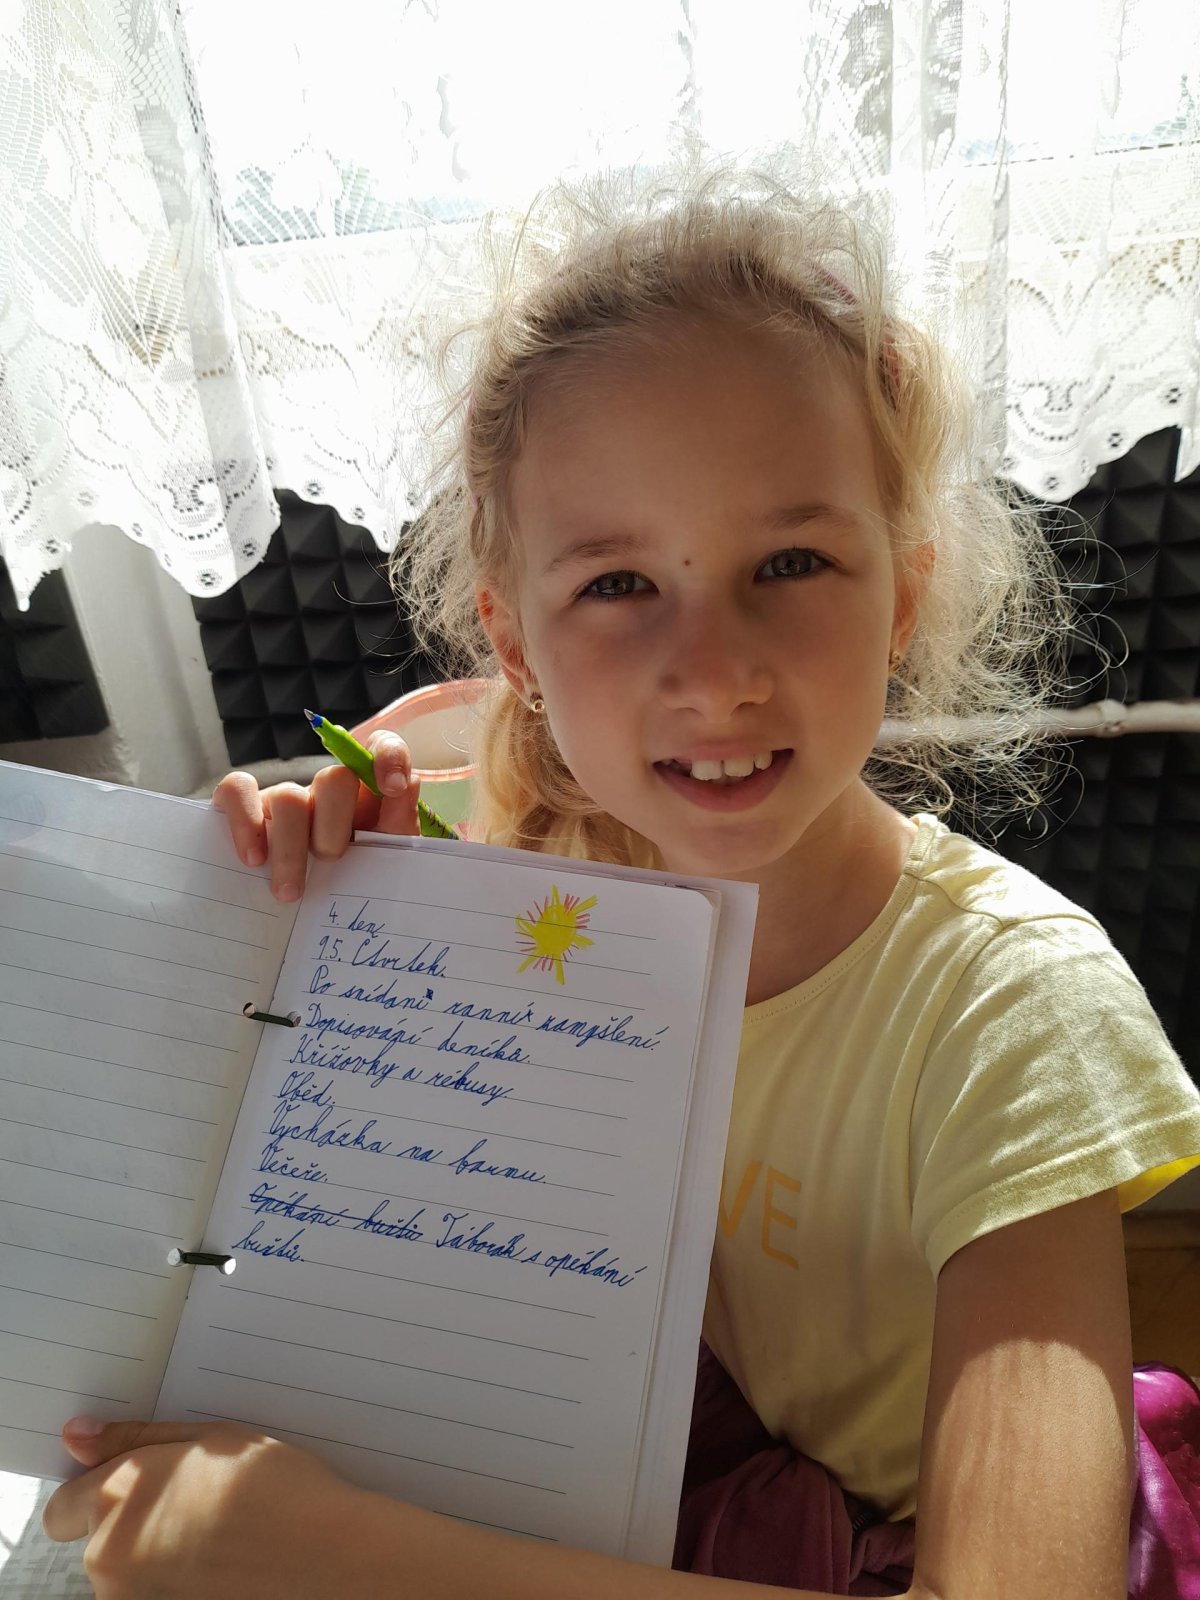 4. den
9.5. Čtvrtek.
Po snídani ranní zamyšlení.
Dopisování deníku.
Křížovky a rébusy.
Oběd.
Vycházka na farmu.
Večeře.
Opékání buřtů Táborák s opékání
buřtů.
VE